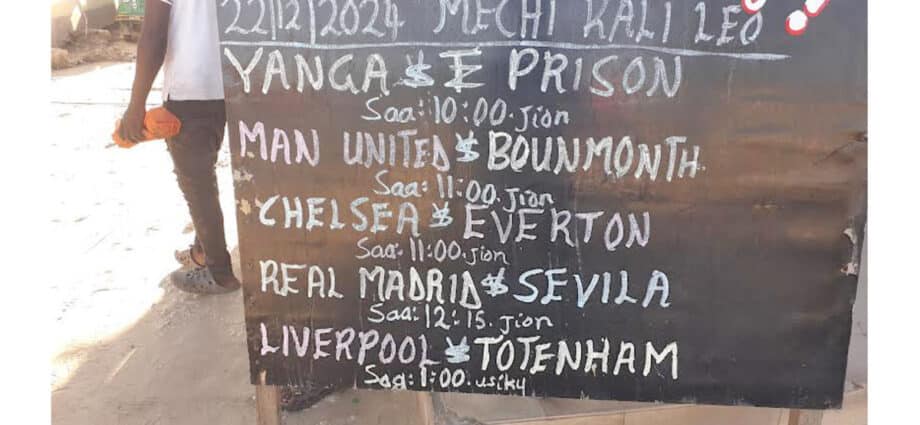 22/12/2024 MECHI KALI LEO
YANGA VS T PRISON
Saa: 10:00. jion
MAN UNITED VS BOUNMONTH
Saa: 11:00. jion
CHELSEA VS EVERTON
Saa: 11:00. jion
REAL MADRID VS SEVILA
Saa: 12:15. jion
LIVERPOOL VS TOTENHAM
Saa: 1:00. usiky